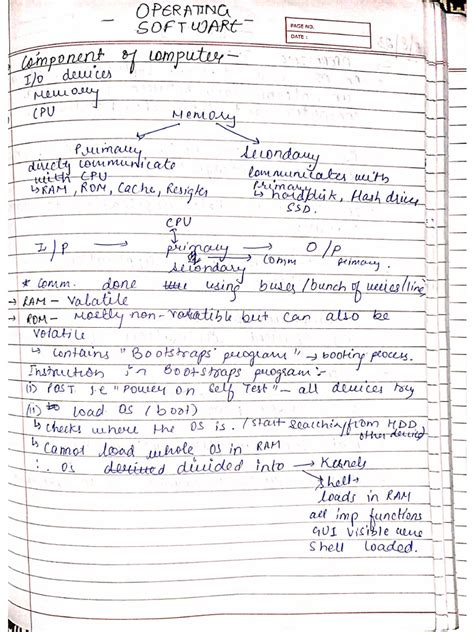 OPERATING
- SOFTWARE -
PAGE NO.
DATE :
Component of computer -
I/O devices
Memory
CPU
Memory
Primary Secondary
directly communicate communicates with
with CPU primary
↳ RAM, ROM, Cache, ↳ harddisk, flash drives
SSD.
CPU
I/P → primary → O/P
secondary comm primary.
* comm. done using buses/bunch of wires/line
→ RAM - Volatile
→ ROM - Mostly non-volatile but can also be
volatile
↳ contains "Bootstraps program" → booting process.
Instruction in Bootstraps program:-
(i) POST i.e "Power on Self Test" - all devices try
(ii) to load OS (boot)
↳ checks where the OS is. /start searching from HDD
other devices
↳ Cannot load whole OS in RAM
∴ OS divided into → Kernels
↘ Shell →
loads in RAM
all imp functions
GUI visible were
shell loaded.